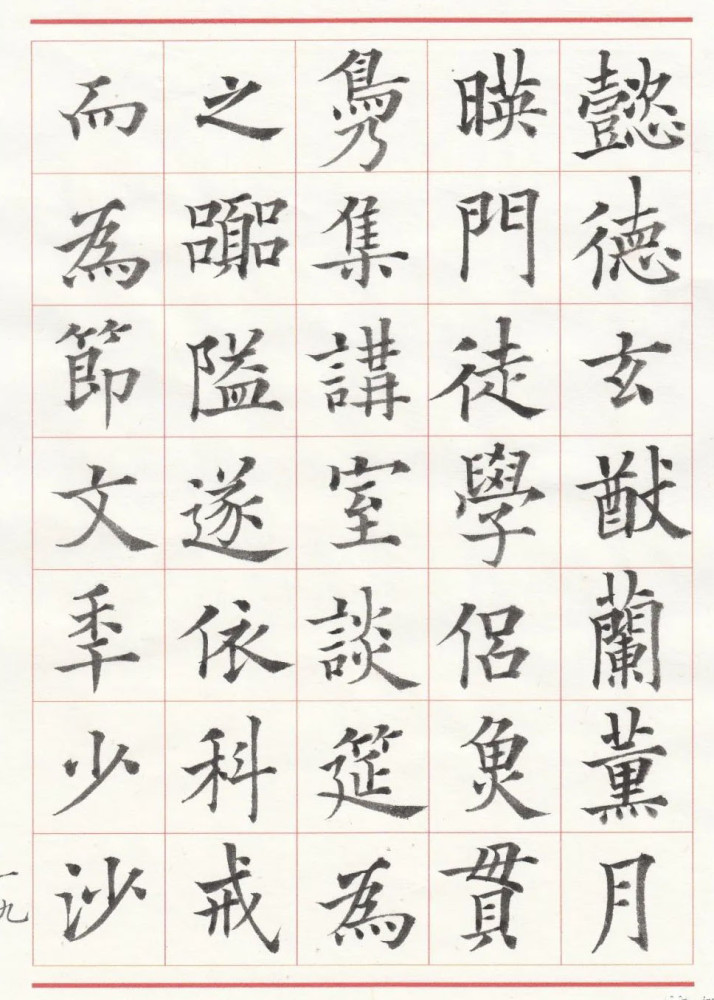 懿德玄猷蘭薰月
暎門徒學侶魚貫
鳧集講室談筵為
之嚻隘遂依科戒
而為節文秊少沙
一九